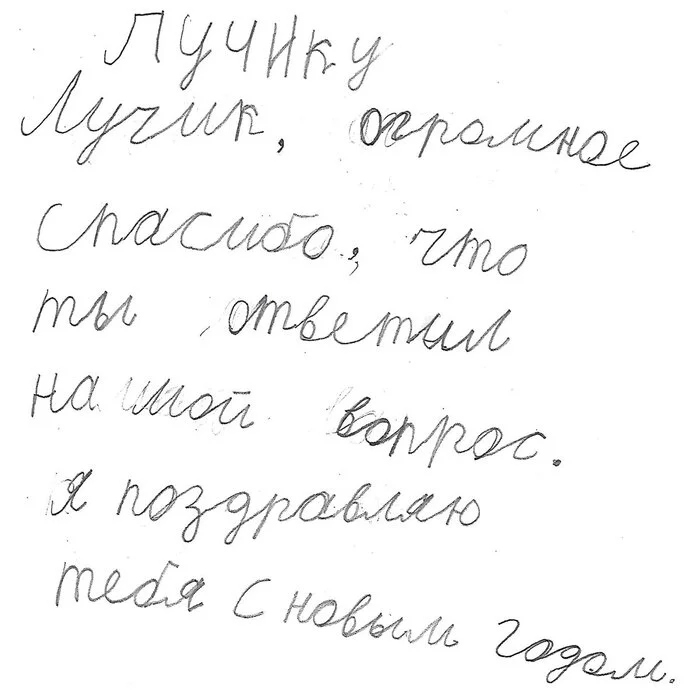 Лучику
Лучик, огромное
спасибо, что
ты ответил
на мой вопрос.
я поздравляю
тебя с новым годом.